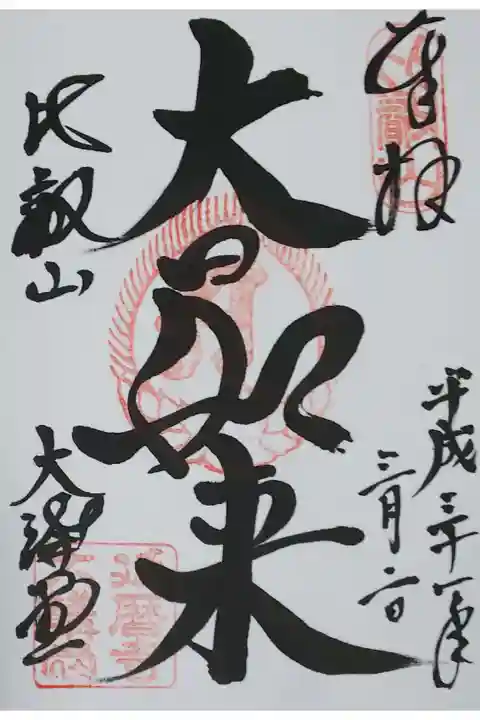 奉拝
平成三十一年
三月二日
大日如来
比叡山
大講堂
延暦寺